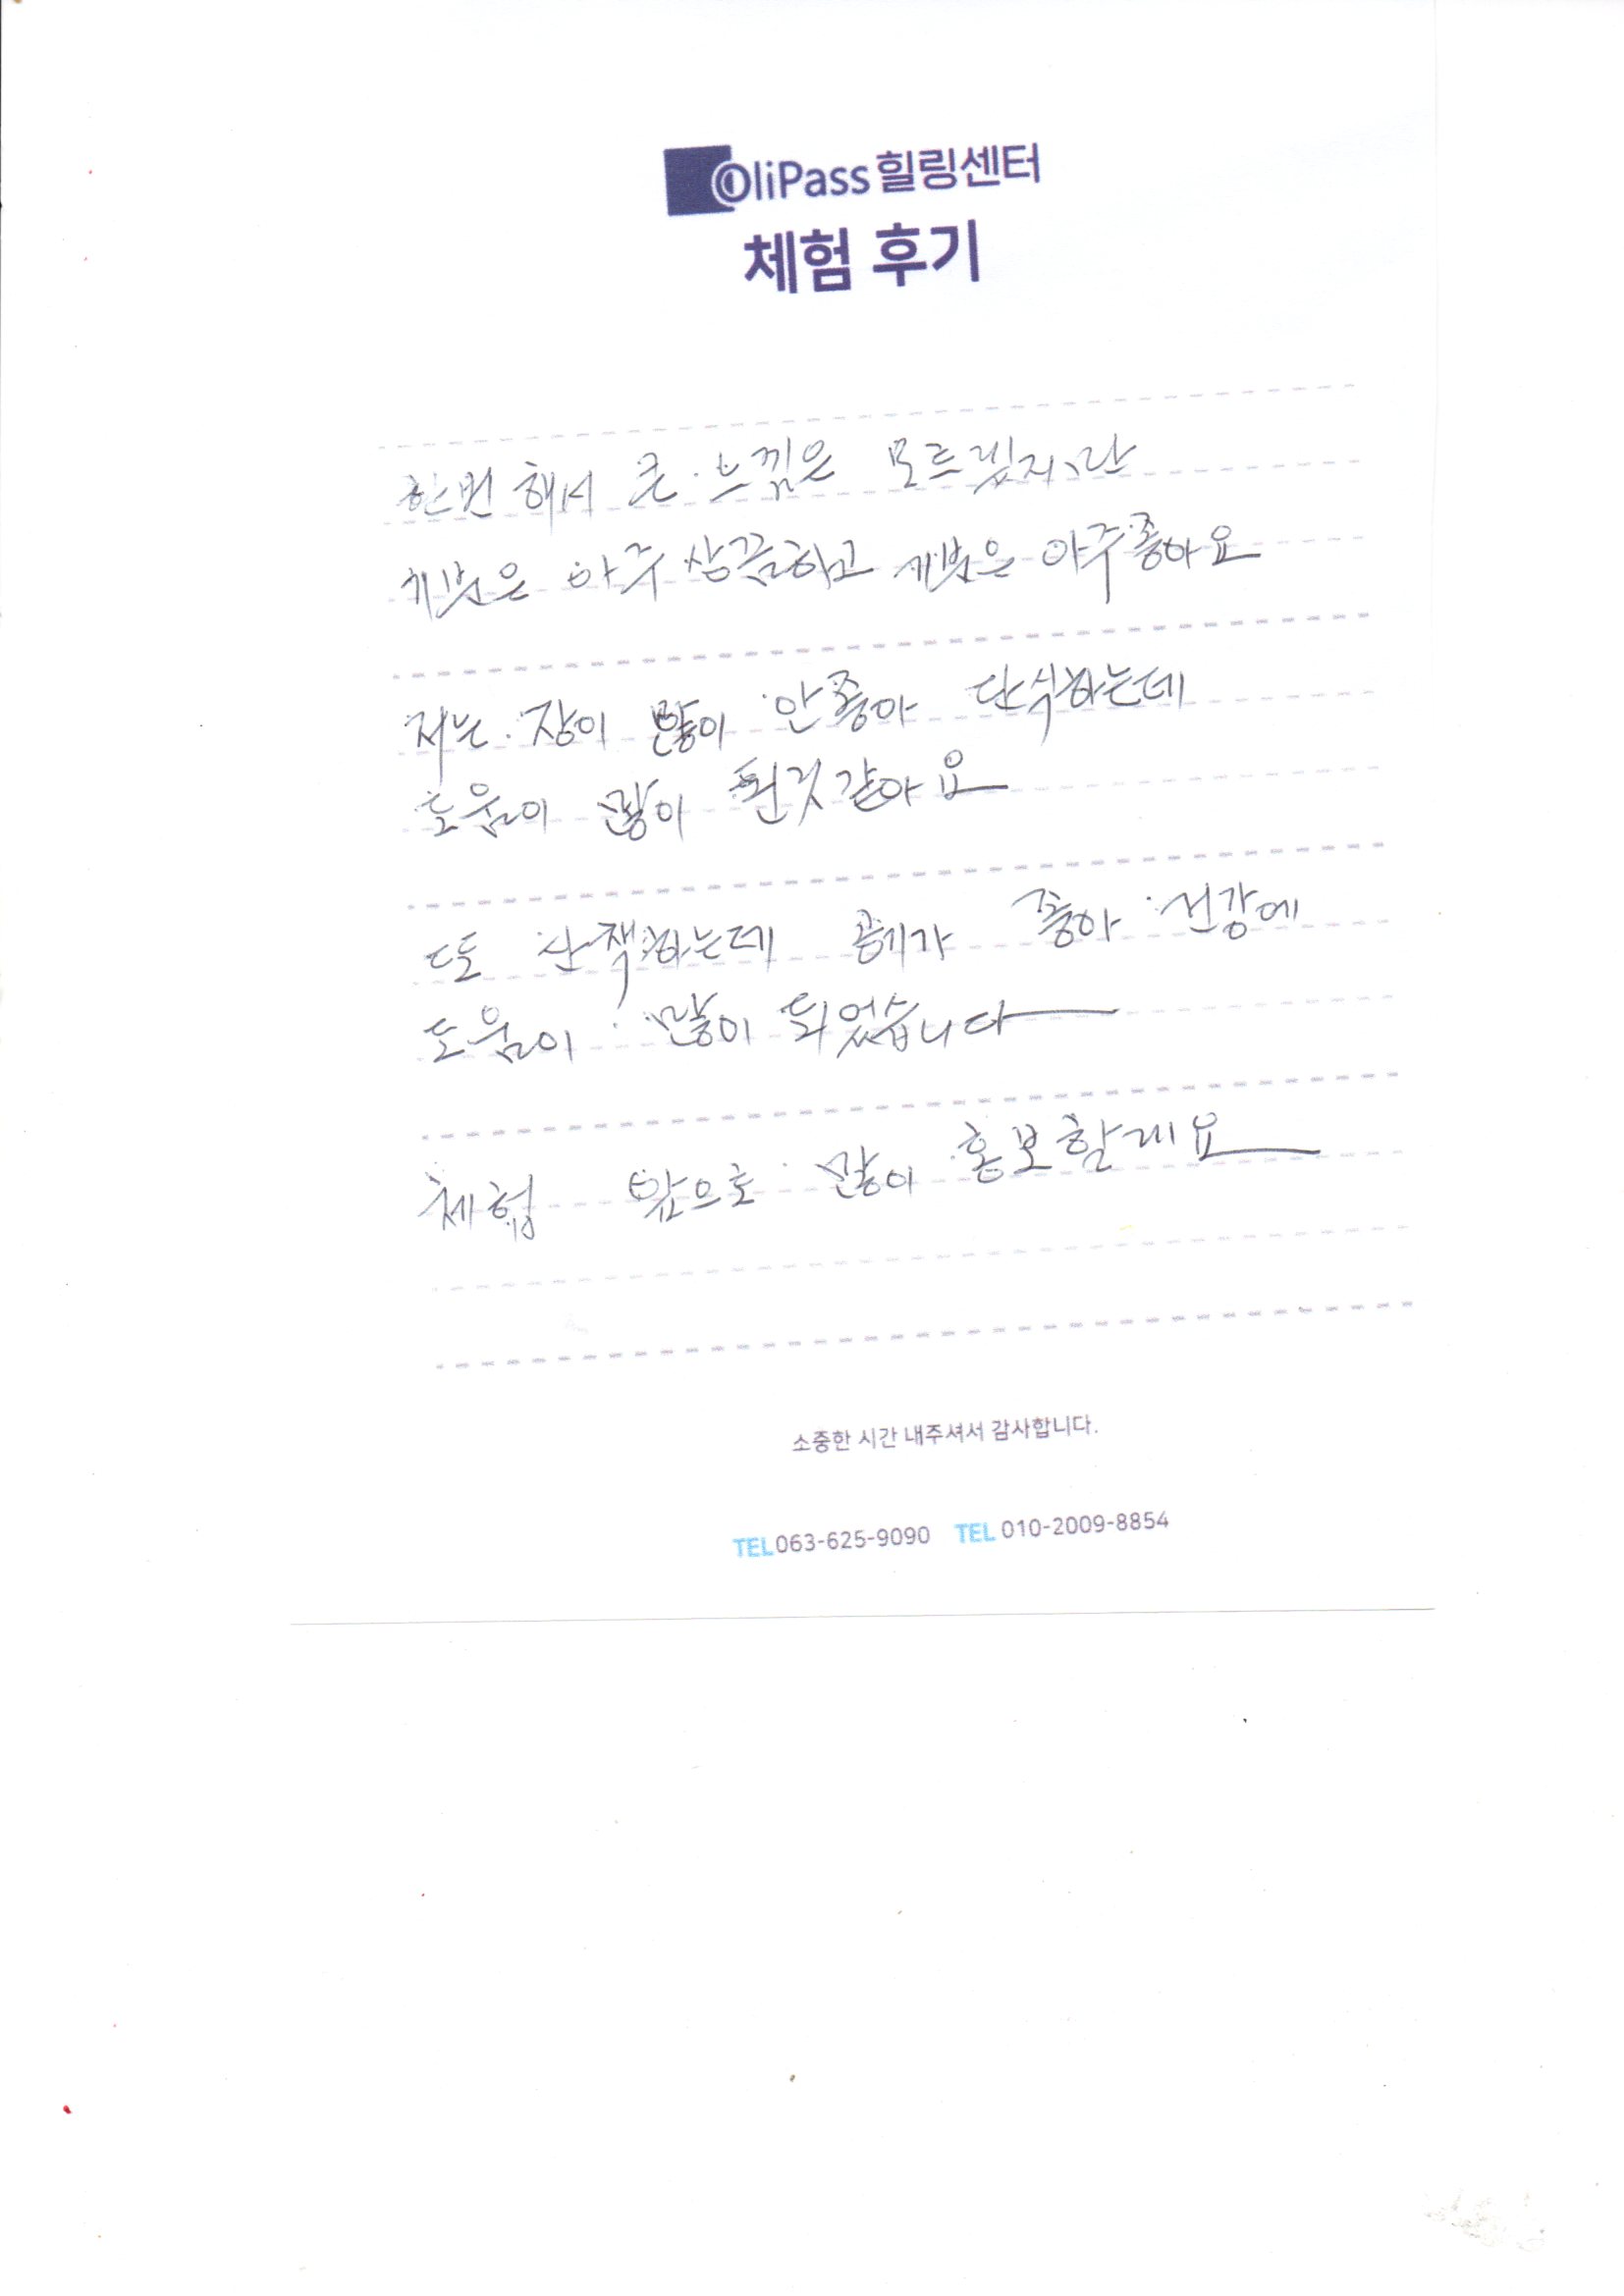 OliPass 힐링센터
체험 후기
한번 해서 큰 느낌은 모르겠지만
기분은 아주 상끔하고 기분은 아주좋아요
저는 장이 많이 안좋아 단식하는데
도움이 많이 된것같아요
또 산책하는데 공기가 좋아 건강에
도움이 많이 되었습니다
체험 앞으로 많이 홍보할게요
소중한 시간 내주셔서 감사합니다.
TEL 063-625-9090 TEL 010-2009-8854